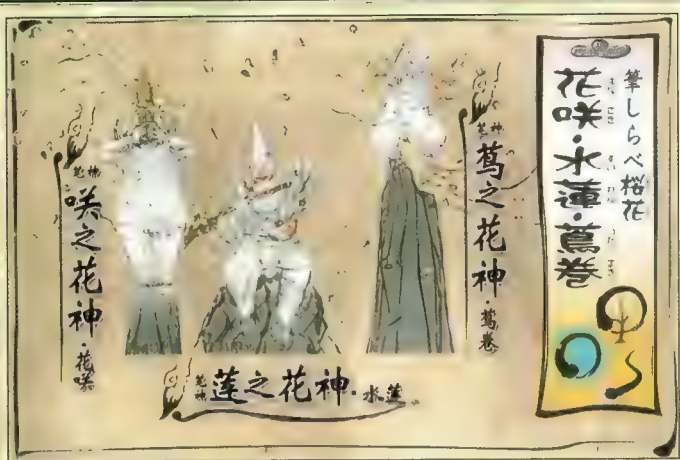 筆しらべ桜花
花咲・水蓮・蔦巻
筆神
蔦之花神・蔦巻
筆神
咲之花神・花咲
筆神
蓮之花神・水蓮